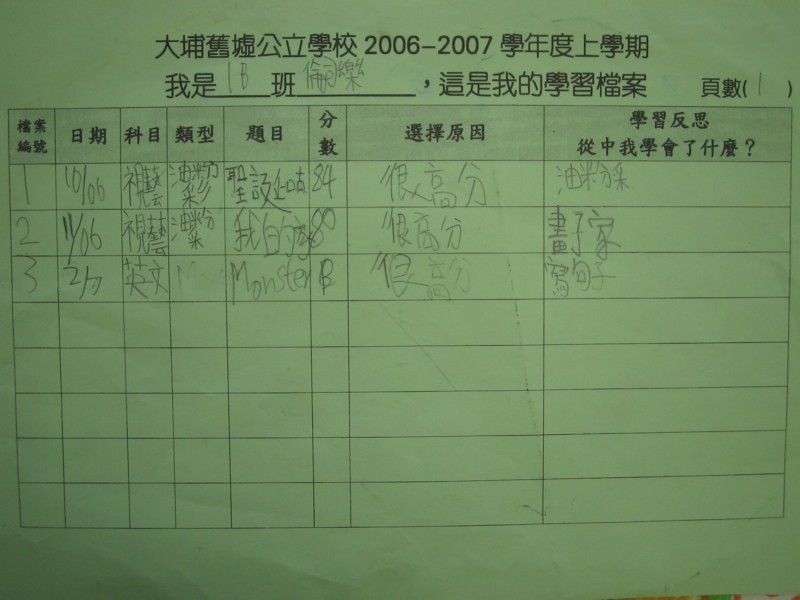 大埔舊墟公立學校 2006-2007 學年度上學期
我是 1B 班 樂 ，這是我的學習檔案 頁數( 1 )
檔案編號 日期 科目 類型 題目 分數 選擇原因 學習反思 從中我學會了什麼？
1 10/06 視藝 油粉 聖 84 很高分 油粉
2 11/06 視藝 油粉 我的 80 很高分 畫了家
3 2/7 英文 Monster B 很高分 寫句子